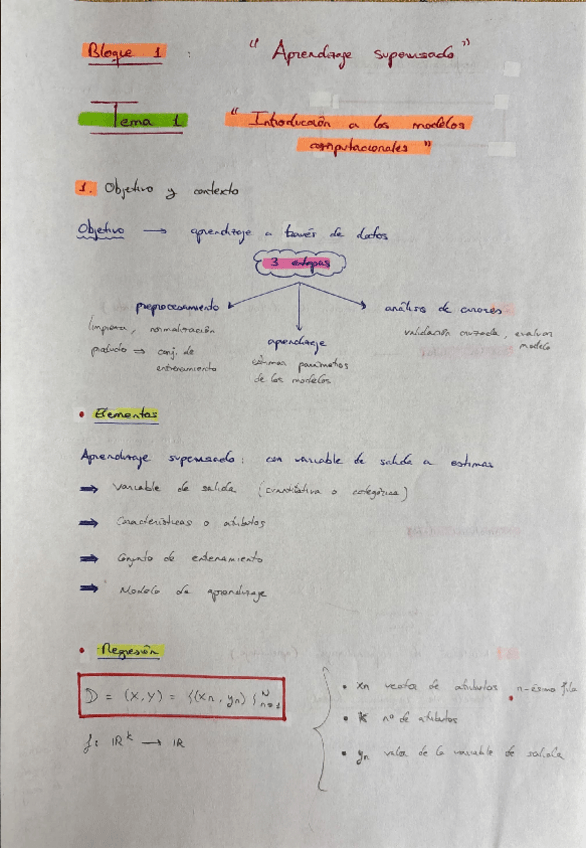 Bloque 1 : "Aprendizaje supervisado"
Tema 1 "Introducción a los modelos
computacionales"
1. Objetivo y contexto
Objetivo → aprendizaje a través de datos
3 etapas
preprocesamiento
limpieza, normalización
producto ⇒ conj. de
entrenamiento
aprendizaje
estimar parámetros
de los modelos
análisis de errores
validación cruzada, evaluar
modelo
• Elementos
Aprendizaje supervisado: con variable de salida a estimar
⇒ Variable de salida (cuantitativa o categórica)
⇒ Características o atributos
⇒ Conjunto de entrenamiento
⇒ Modelo de aprendizaje
• Regresión
D = (X, Y) = {(xn, yn)}ᴺₙ₌₁
f: ℝᵏ → ℝ
• xn vector de atributos n-ésima fila
• k nº de atributos
• yn valor de la variable de salida